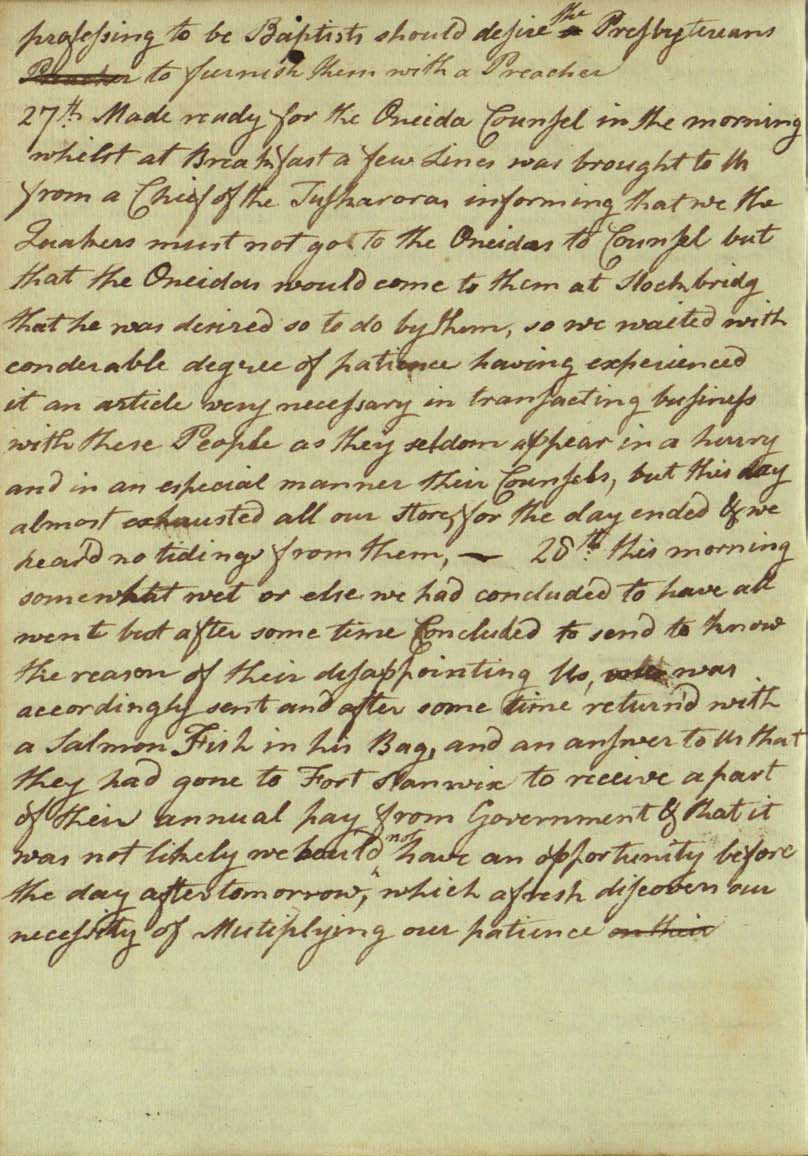 professing to be Baptists should desire the Presbyterians
Preacher to furnish them with a Preacher
27th. Made ready for the Oneida Counsel in the morning
whilst at Breakfast a few Lines was brought to Us
from a Chief of the Tuskaroras informing that we the
Quakers must not go to the Oneidas to Counsel but
that the Oneidas would come to them at Stockbridg
that he was desired so to do by them, so we waited with
conderable degree of patience having experienced
it an article very necessary in transacting business
with these People as they seldom appear in a hurry
and in an especial manner their Counsels, but this day
almost exhausted all our store, for the day ended & we
heard no tidings from them, — 28th. this morning
somewhat wet or else we had concluded to have all
went but after some time Concluded to send to know
the reason of their disappointing Us, was
accordingly sent and after some time return'd with
a Salmon Fish in his Bag, and an answer to Us that
they had gone to Fort Stanwix to receive a part
of their annual pay from Government & that it
was not likely we could not have an opportunity before
the day after tomorrow," which afresh discovers our
necessity of Multiplying our patience on their